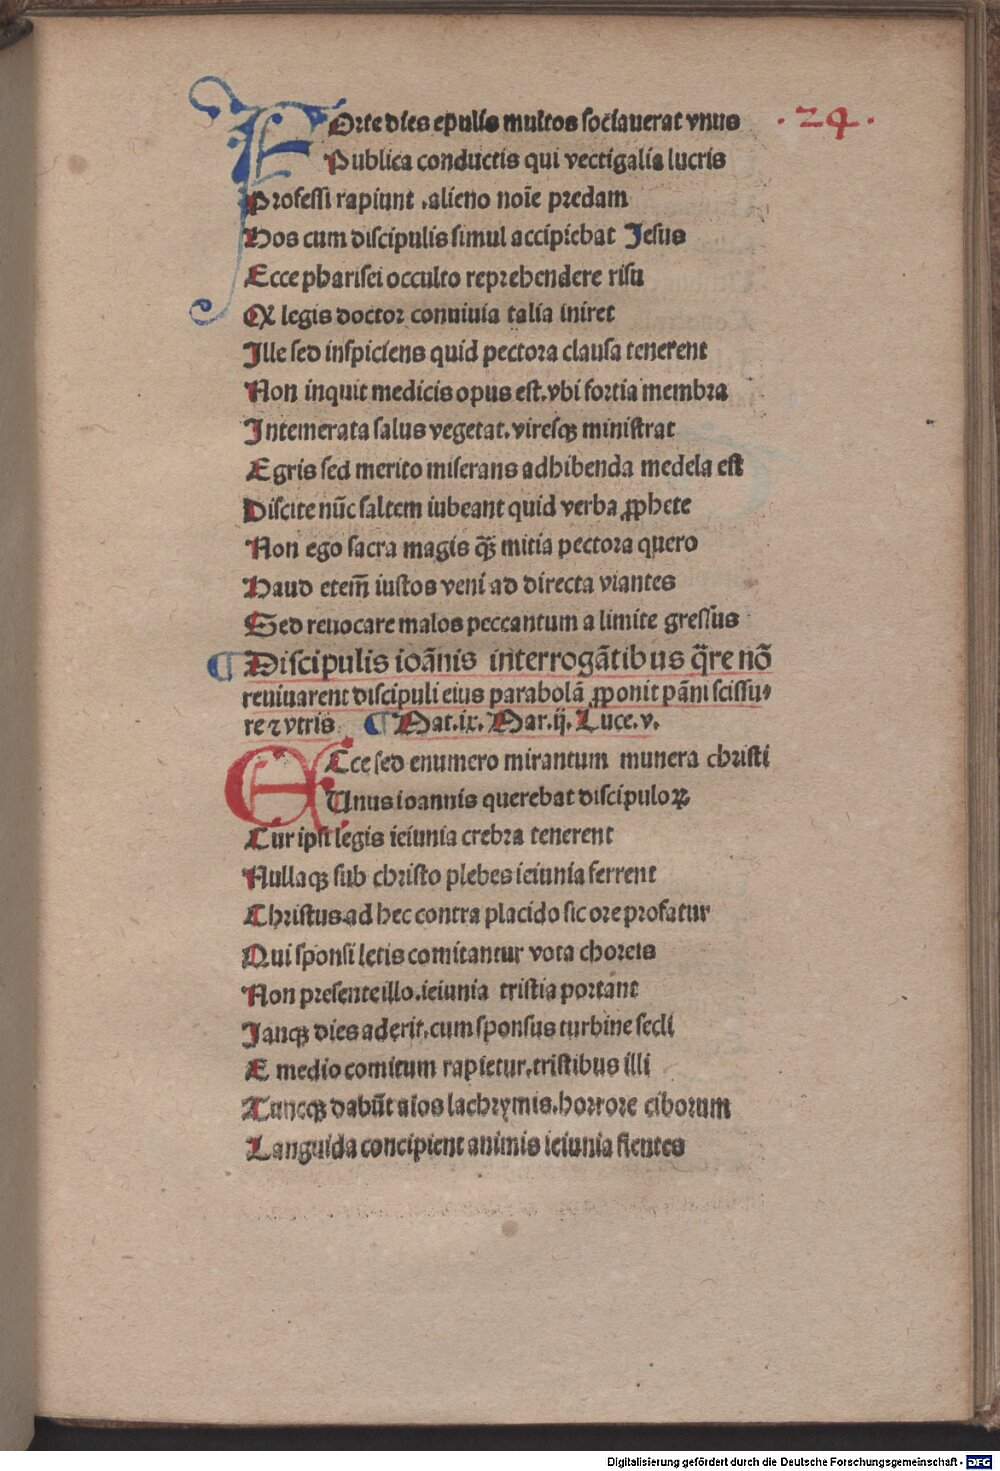 FOrte dies epulis multos sociauerat vnus
· 24 ·
Publica conductis qui vectigalia lucris
Professi rapiunt .alieno noīe predam
Hos cum discipulis simul accipiebat Jesus
Ecce pharisei occulto reprehendere risu
Qꝫ legis doctor conuiuia talia iniret
Ille sed inspiciens quid pectora clausa tenerent
Non inquit medicis opus est.vbi fortia membra
Intemerata salus vegetat.viresqꝫ ministrat
Egris sed merito miserans adhibenda medela est
Discite nūc saltem iubeant quid verba ꝓphete
Non ego sacra magis qꝫ̄ mitia pectora quero
Haud eteni̅ iustos veni ad directa viantes
Sed reuocare malos peccantum a limite gressus
¶ Discipulis ioānis interrogātibus q̄re nō
reuiuarent discipuli eius parabolā ꝓponit pāni scissu⸗
re ⁊ vtris ¶ Mat.ix. Mar.ij. Luce.v.
ECce sed enumero mirantum munera christi
Unus ioannis querebat discipuloꝝ
Cur ipsi legis ieiunia crebra tenerent
Nullaqꝫ sub christo plebes ieiunia ferrent
Christus ad hec contra placido sic ore profatur
Qui sponsi letis comitantur vota choreis
Non presente illo.ieiunia tristia portant
Janqꝫ dies aderit.cum sponsus turbine secli
E medio comitum rapietur.tristibus illi
Tuncqꝫ dabūt aios lachrymis.horrore ciborum
Languida concipient animis ieiunia flentes
Digitalisierung gefördert durch die Deutsche Forschungsgemeinschaft - DFG